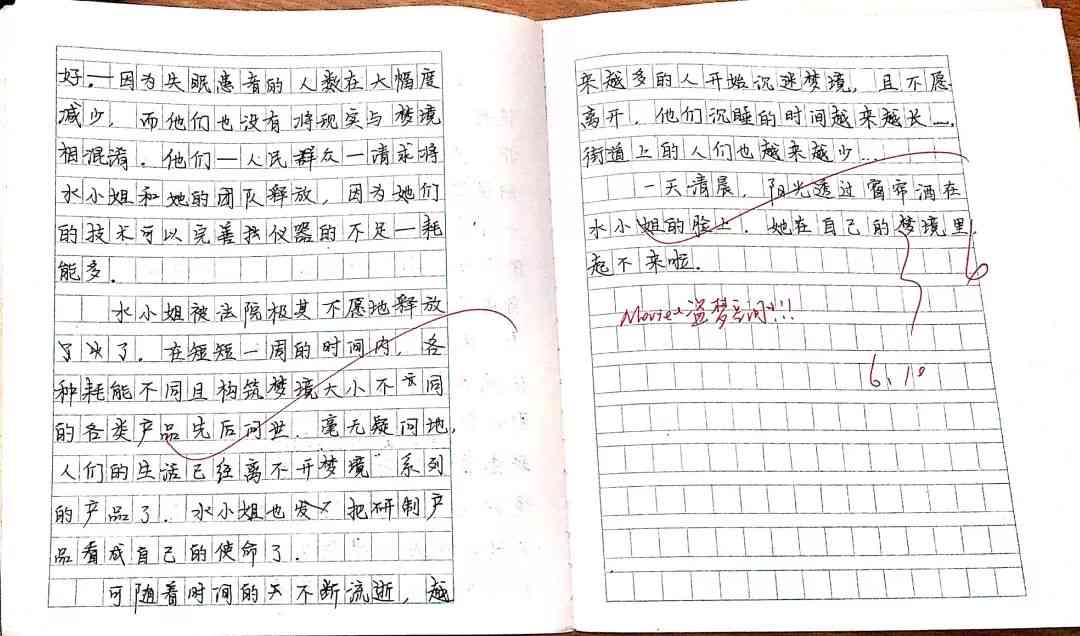 好.一因为失眠患者的人数在大幅度
减少，而他们也没有将现实与梦境
相混淆.他们一人民群众一请求将
水小姐和她的团队释放，因为她们
的技术可以完善我仪器的不足一耗
能多.
水小姐被法院极其不愿地释放
了.在短短一周的时间内，各
种耗能不同且构筑梦境大小不同
的各类产品先后问世.毫无疑问地，
人们的生活已经离不开梦境 系列
的产品了.水小姐也 把研制产
品看成自己的使命了.
可随着时间的不断流逝，越
来越多的人开始沉迷梦境，且不愿
离开，他们沉睡的时间越来越长……，
街道上的人们也越来越少…
一天清晨，阳光透过窗帘洒在
水小姐的脸上.她在自己的梦境里
起不来啦.
Movie:盗梦空间!!!
6.10